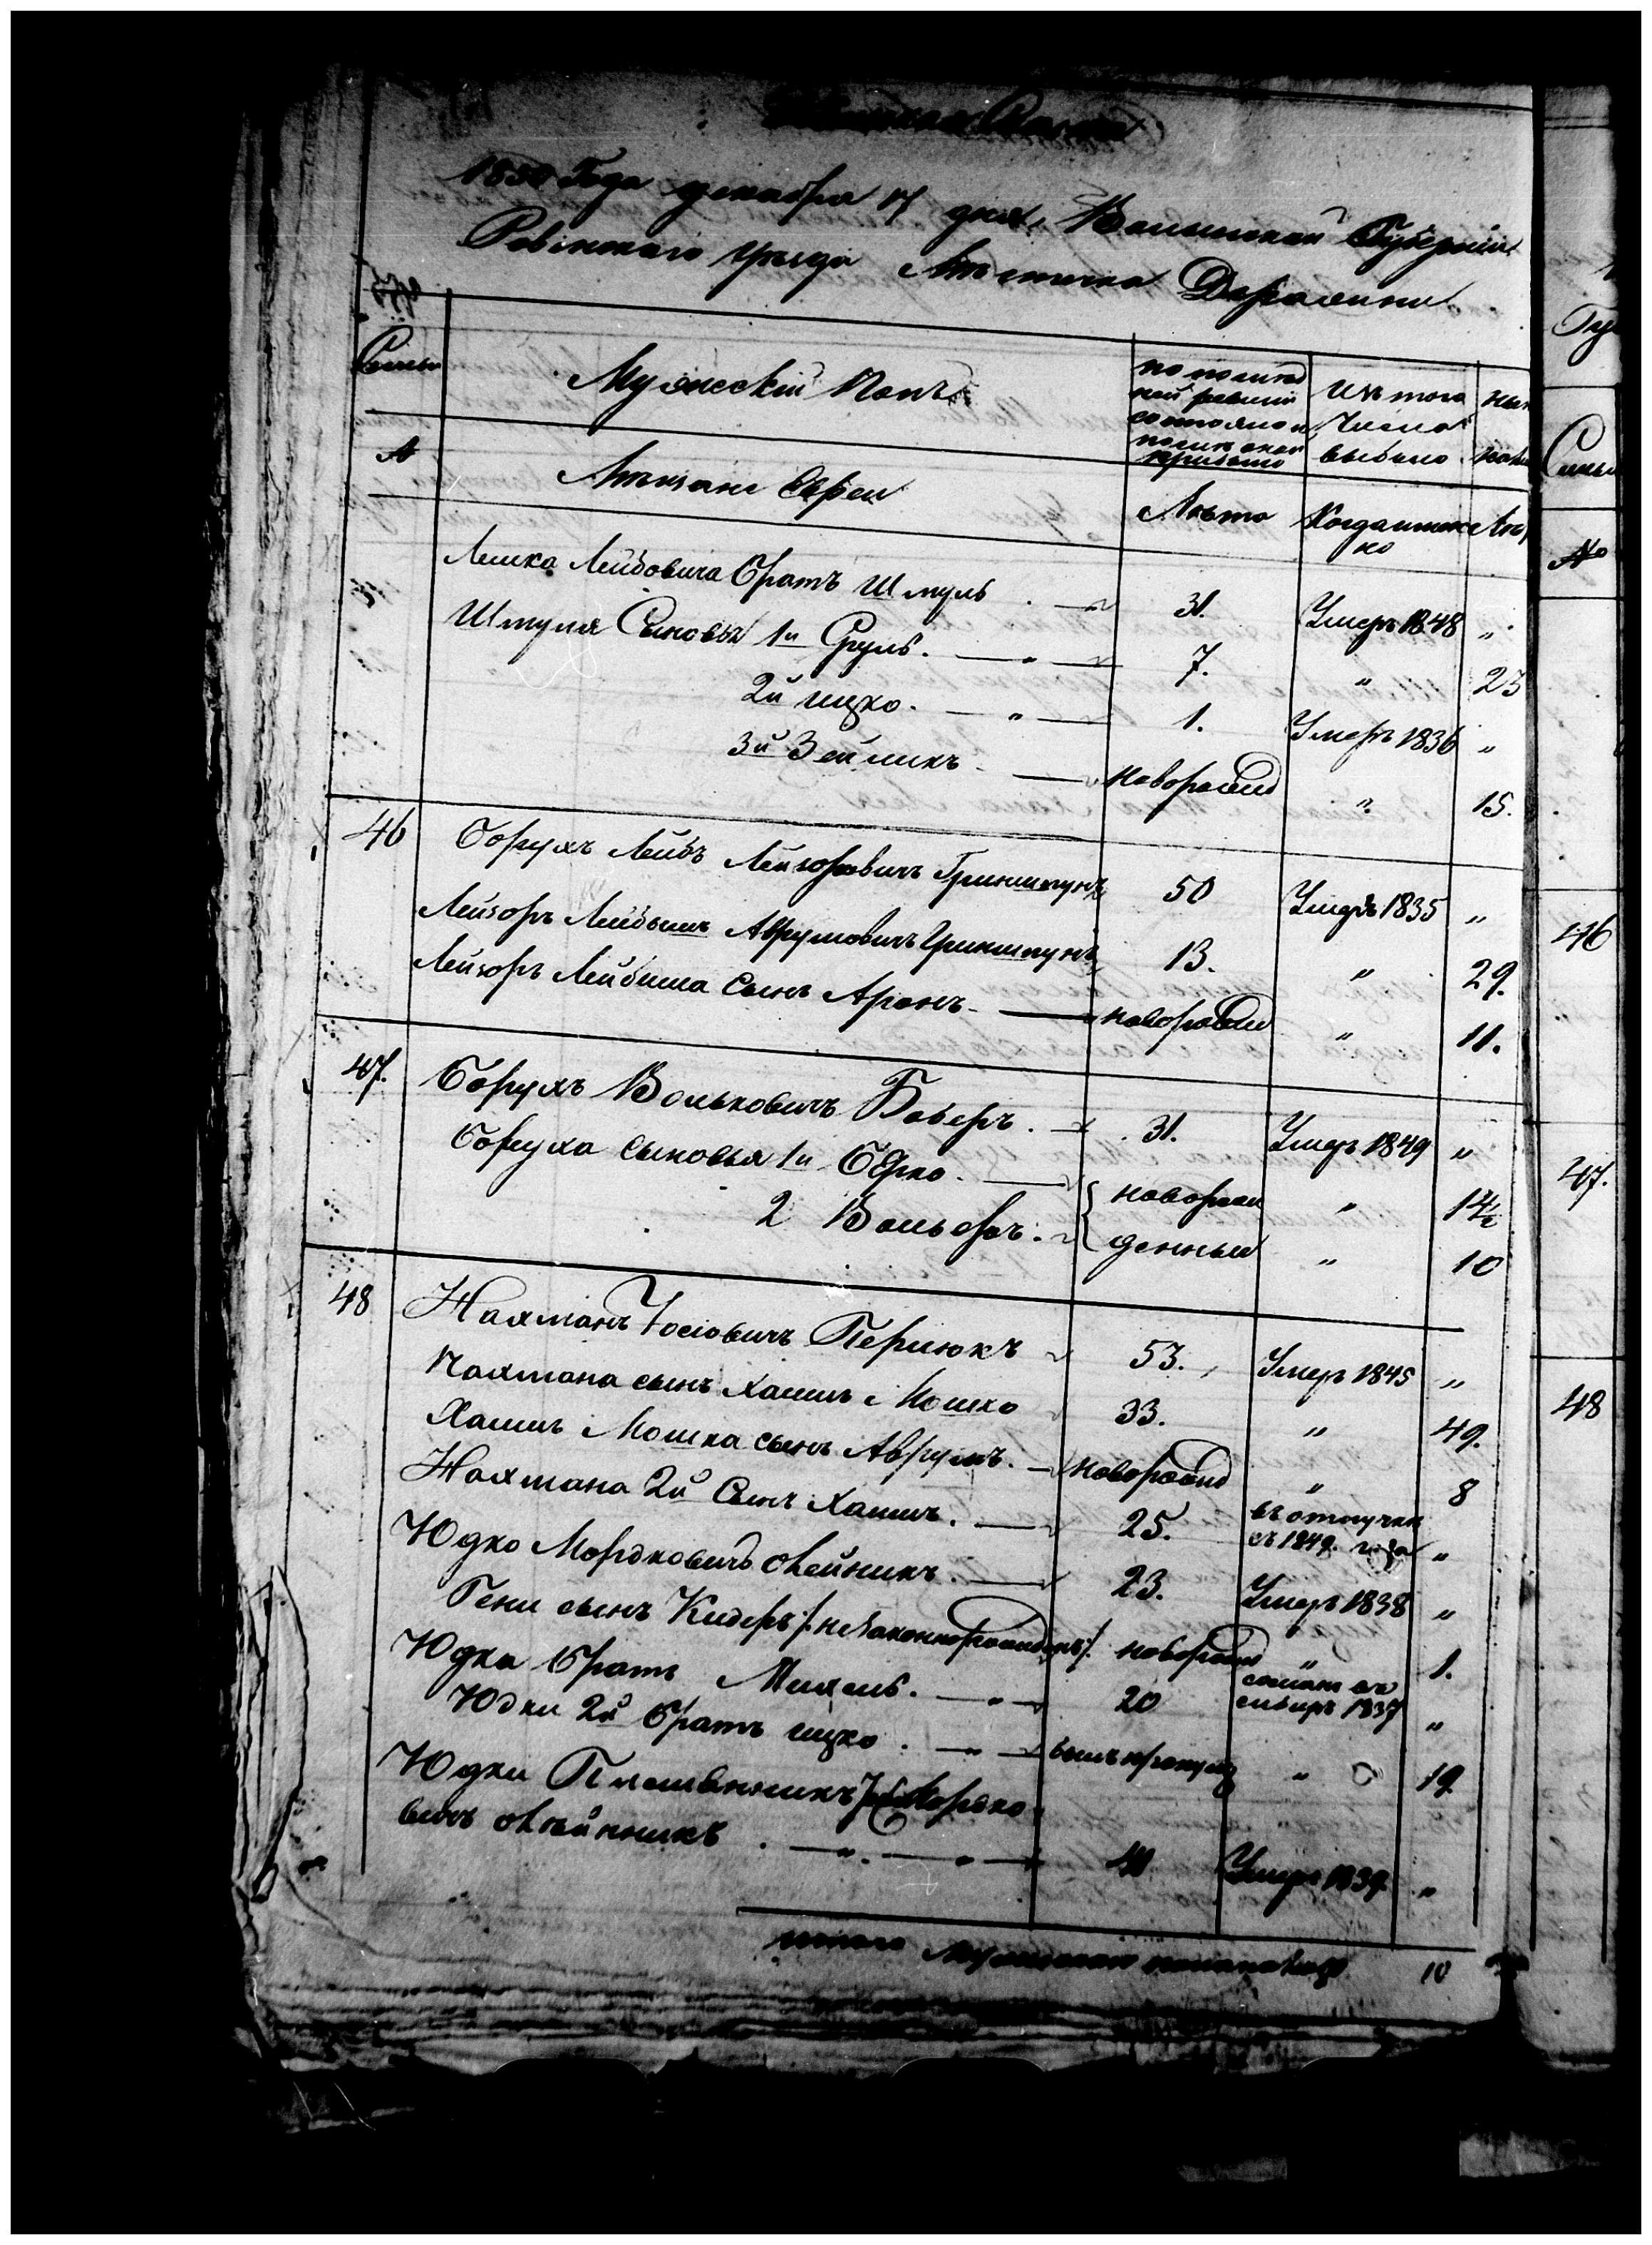 1850 Года декабря 17 дня, Волынской Губернии
Ровенскаго уезда Местечка Деражни
Семьи
Мужескій Полъ
по послед
ней ревизіи
состояло и
после оной
прибыло
Изъ того
числа
выбыло
ныне
№
Мещане Евреи
Лета
Когда именно
Лета
Лейбовича Братъ Шмуль 31. Умеръ 1848 "
Шмуля Сыновья 1й Сруль. " 7. " 23
2й Ицко. " 1. Умеръ 1836 "
3й Зейликъ новорожд " 15.
46 Борухъ Лейбъ Лейзоровичъ Гриншпунъ 50 Умеръ 1835 "
Лейзоръ Лейбишъ Аврумовичъ Гриншпунъ 13. " 29.
Лейзоръ Лейбиша сынъ Аронъ новорожд " 11.
47. Борухъ Вольковичъ Боберъ. 31. Умеръ 1849 "
Боруха сыновья 1й Берко. новорож " 14½
2 Вольфъ. денные " 10
48 Нахманъ Іосіовичъ Перлюкъ 53. Умеръ 1845 "
Нахмана сынъ Хаимъ Мошко 33. " 49.
Хаимъ Мошка сынъ Аврумъ. новорожд " 8
Нахмана 2й Сынъ Хаимъ. 25. въ отлучке съ 1849. года "
Юдко Мордковичъ Олейникъ. 23. Умеръ 1838 "
Гени сынъ Кидеръ /:незаконнорожденъ/: новорожд " 1.
Юдки Братъ Михель. " 20 сосланъ въ сибирь 1837 "
Юдки 2й Братъ Ицко. " былъ пропущ " 19.
Юдки Племянникъ Мордко
вичъ Олейникъ. " Умеръ 1839. "
итого мужескаго пола налицо 10
46
47.
48